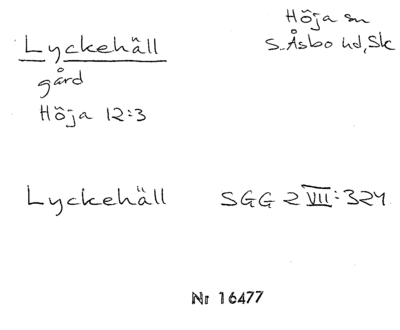 Höja sn
Lyckehäll
S. Åsbo hd, Sk
gård
Höja 12:3
Lyckehäll SGG 2 VII: 324
Nr 16477